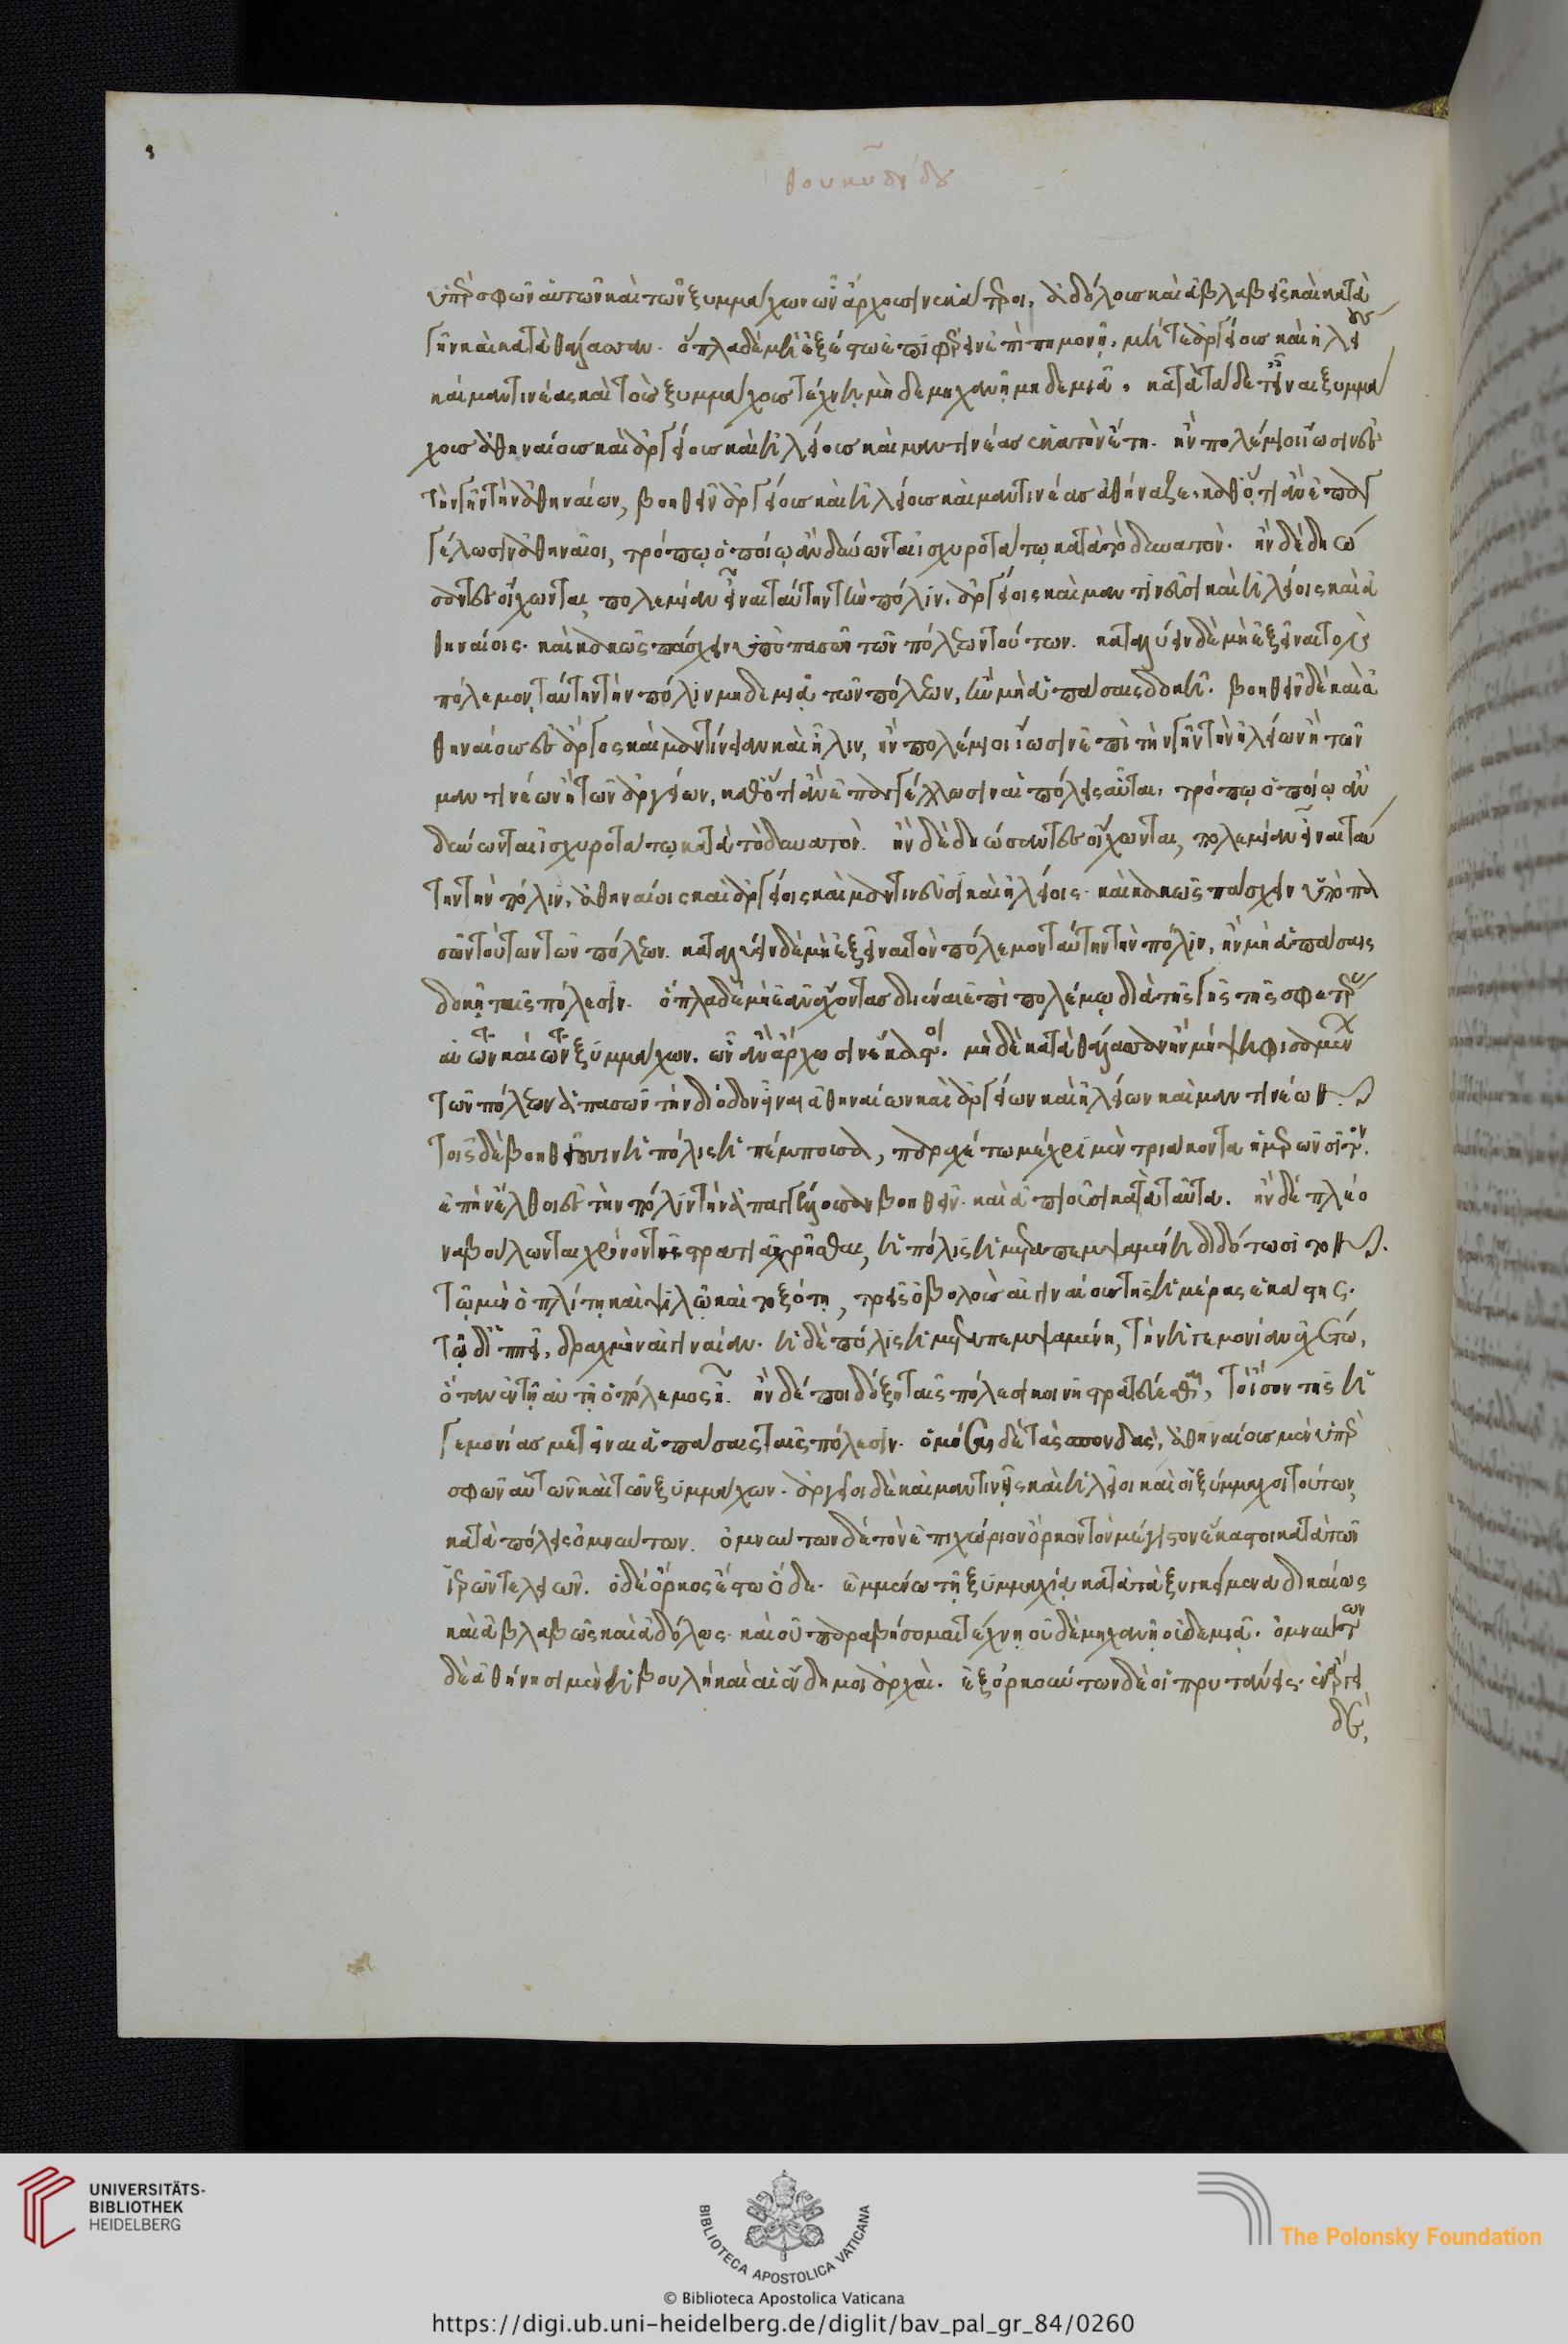 θουκυδίδου
ὑπὲρ σφῶν αὐτῶν καὶ τῶν ξυμμάχων ὧν ἄρχουσιν ἑκάτεροι, ἀδόλους καὶ ἀβλαβεῖς καὶ κατὰ
γῆν καὶ κατὰ θάλασσαν. ὅπλα δὲ μὴ ἐξέστω ἐπιφέρειν ἐπὶ πημονῇ, μήτε ἀργείους καὶ ἠλείους
καὶ μαντινέας καὶ τοὺς ξυμμάχους τέχνῃ μηδὲ μηχανῇ μηδεμιᾷ. κατὰ τάδε εἶναι ξυμμά
χους ἀθηναίους καὶ ἀργείους καὶ ἠλείους καὶ μαντινέας ἑκατὸν ἔτη. ἢν πολέμιοι ἴωσιν ἐς
τὴν γῆν τὴν ἀθηναίων, βοηθεῖν ἀργείους καὶ ἠλείους καὶ μαντινέας ἀθήναζε, καθ' ὅ,τι ἂν ἐπαγ
γέλωσιν ἀθηναῖοι, τρόπῳ ὁποίῳ ἂν δύνωνται ἰσχυροτάτῳ κατὰ τὸ δυνατόν. ἢν δὲ δῃώ
σαντες οἴχωνται, πολεμίαν εἶναι ταύτην τὴν πόλιν, ἀργείοις καὶ μαντινεῦσι καὶ ἠλείοις καὶ ἀ
θηναίοις. καὶ κακῶς πάσχειν ὑπὸ πασῶν τῶν πόλεων τούτων. καταλύειν δὲ μὴ ἐξεῖναι τὸν
πόλεμον, ταύτην τὴν πόλιν μηδεμιᾷ τῶν πόλεων, ἢν μὴ ἁπάσαις δοκῇ. βοηθεῖν δὲ καὶ ἀ
θηναίους ἐς ἄργος καὶ μαντίνειαν καὶ ἦλιν, ἢν πολέμιοι ἴωσιν ἐπὶ τὴν γῆν τὴν ἠλείων ἢ τῶν
μαντινέων ἢ τῶν ἀργείων, καθ' ὅ,τι ἂν ἐπαγγέλλωσιν αἱ πόλεις αὗται, τρόπῳ ὁποίῳ ἂν
δύνωνται ἰσχυροτάτῳ κατὰ τὸ δυνατόν. ἢν δὲ δῃώσαντες οἴχωνται, πολεμίαν εἶναι ταύ
την τὴν πόλιν, ἀθηναίοις καὶ ἀργείοις καὶ μαντινεῦσι καὶ ἠλείοις. καὶ κακῶς πάσχειν ὑπὸ πα
σῶν τούτων τῶν πόλεων. καταλύειν δὲ μὴ ἐξεῖναι τὸν πόλεμον ταύτην τὴν πόλιν, ἢν μὴ ἁπάσαις
δοκῇ ταῖς πόλεσιν. ὅπλα δὲ μὴ ἐᾶν ἔχοντας διιέναι ἐπὶ πολέμῳ διὰ τῆς γῆς τῆς σφετέρας
αὐτῶν καὶ τῶν ξυμμάχων, ὧν ἂν ἄρχωσιν ἕκαστοι. μηδὲ κατὰ θάλασσαν, ἢν μὴ ψηφισαμένων
τῶν πόλεων ἁπασῶν τὴν δίοδον εἶναι ἀθηναίων καὶ ἀργείων καὶ ἠλείων καὶ μαντινέων.
τοῖς δὲ βοηθοῦσιν ἡ πόλις ἡ πέμπουσα, παρεχέτω μέχρι μὲν τριάκοντα ἡμερῶν σῖτον.
ἐπὴν ἔλθοι ἐς τὴν πόλιν τὴν ἐπαγγείλασαν βοηθεῖν. καὶ ἀπιοῦσι κατὰ ταῦτα. ἢν δὲ πλέο
να βούλωνται χρόνον τῇ στρατιᾷ χρῆσθαι, ἡ πόλις ἡ μεταπεμψαμένη διδότω σῖτον.
τῷ μὲν ὁπλίτῃ καὶ ψιλῷ καὶ τοξότῃ, τρεῖς ὀβολοὺς αἰγιναίους τῆς ἡμέρας ἑκάστης.
τῷ δ' ἱππεῖ, δραχμὴν αἰγιναίαν. ἡ δὲ πόλις ἡ μεταπεμψαμένη, τὴν ἡγεμονίαν ἐχέτω,
ὅταν ἐν τῇ αὐτῇ ὁ πόλεμος ᾖ. ἢν δέ ποι δόξῃ ταῖς πόλεσι κοινῇ στρατεύεσθαι, τὸ ἴσον τῆς ἡ
γεμονίας μετεῖναι ἁπάσαις ταῖς πόλεσιν. ὀμόσαι δὲ τὰς σπονδὰς, ἀθηναίους μὲν ὑπὲρ
σφῶν αὐτῶν καὶ τῶν ξυμμάχων. ἀργεῖοι δὲ καὶ μαντινεῖς καὶ ἠλεῖοι καὶ οἱ ξύμμαχοι τούτων,
κατὰ πόλεις ὀμνύντων. ὀμνύντων δὲ τὸν ἐπιχώριον ὅρκον τὸν μέγιστον ἕκαστοι κατὰ τῶν
ἱερῶν τελείων. ὁ δὲ ὅρκος ἔστω ὅδε. ἐμμενῶ τῇ ξυμμαχίᾳ κατὰ τὰ ξυγκείμενα δικαίως
καὶ ἀβλαβῶς καὶ ἀδόλως. καὶ οὐ παραβήσομαι τέχνῃ οὐδὲ μηχανῇ οὐδεμιᾷ. ὀμνύντων
δὲ ἀθήνησι μὲν ἡ βουλὴ καὶ αἱ ἔνδημοι ἀρχαὶ. ἐξορκούντων δὲ οἱ πρυτάνεις. ἐν ἄργει
δὲ,
UNIVERSITÄTS-
BIBLIOTHEK
HEIDELBERG
BIBLIOTECA APOSTOLICA VATICANA
The Polonsky Foundation
© Biblioteca Apostolica Vaticana
https://digi.ub.uni-heidelberg.de/diglit/bav_pal_gr_84/0260